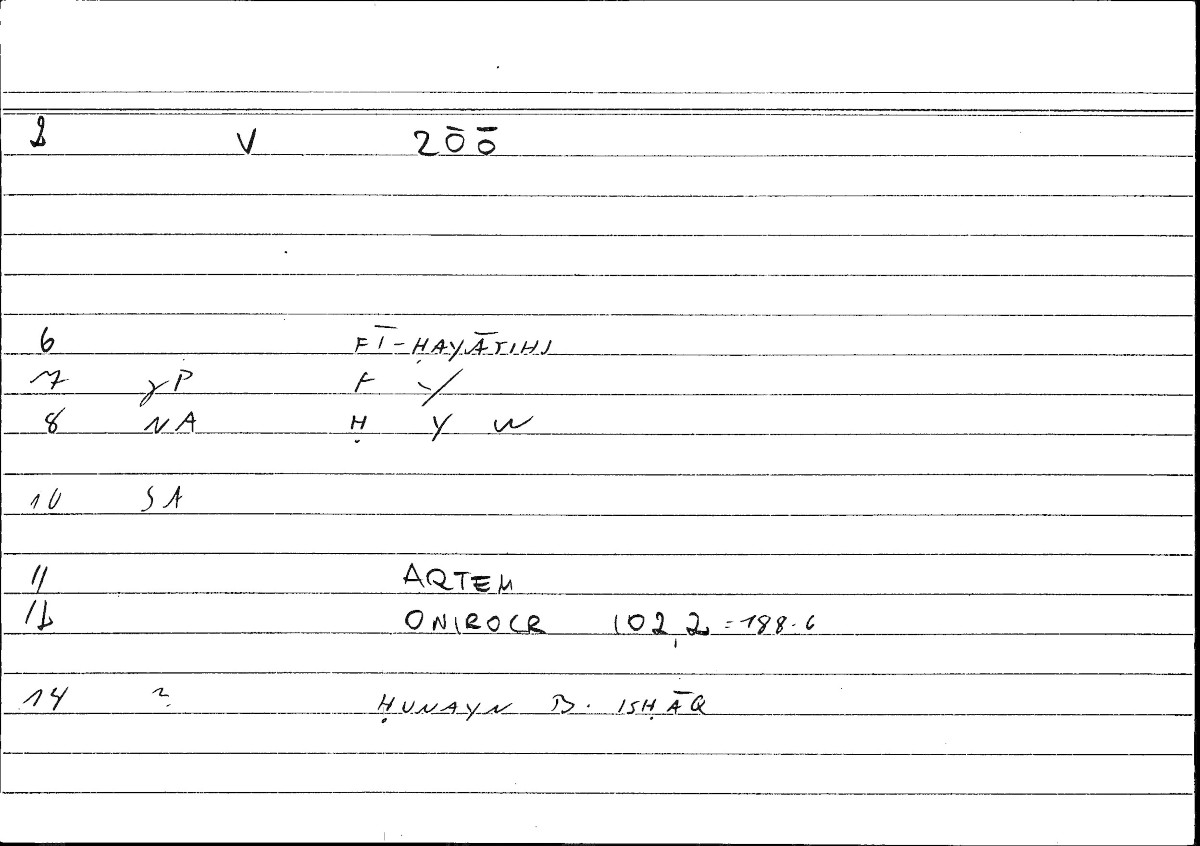 V 2ŌŌ
6 FĪ-ḤAYĀTIHI
7 γP F Y
8 NA Ḥ Y W
10 SA
11 ARTEM
12 ONIROCR 102,2=188.6
14 ? ḤUNAYN B. ISḤĀQ